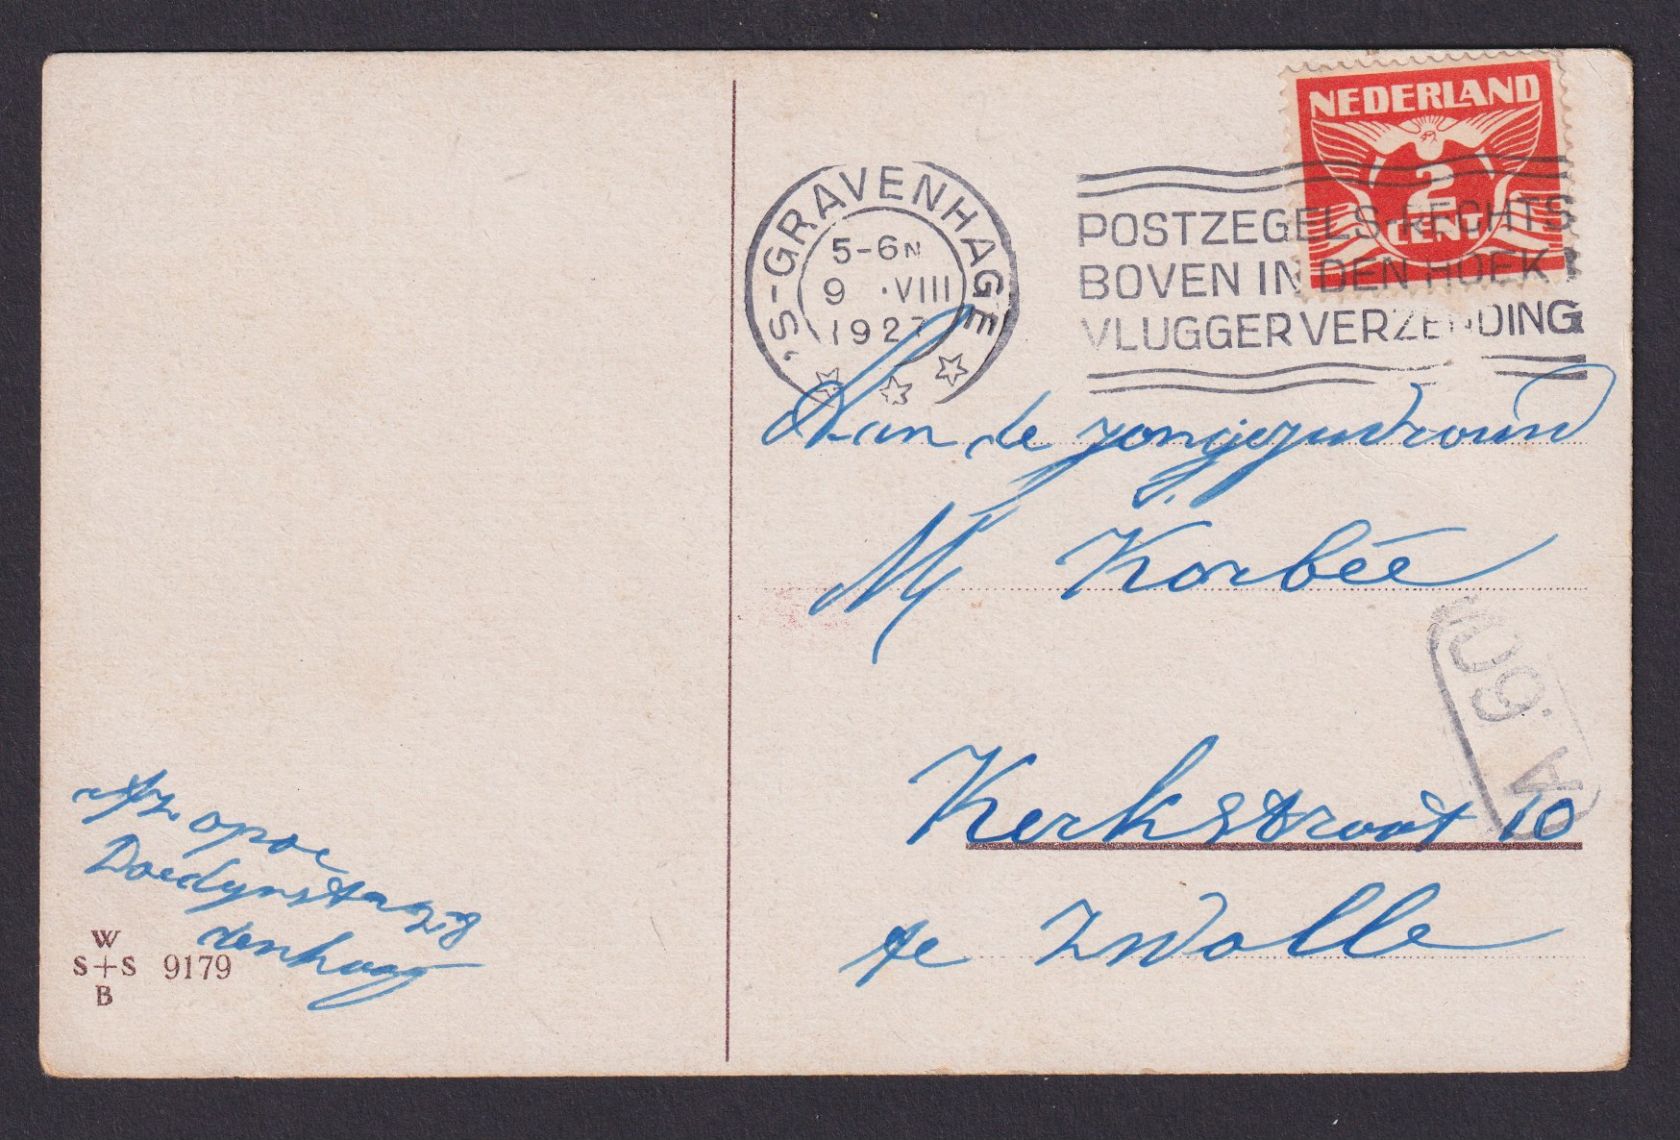 NEDERLAND
2
CENT
'S-GRAVENHAGE
5-6N
9 ·VIII
1927
POSTZEGELS RECHTS
BOVEN IN DEN HOEK!
VLUGGER VERZENDING
Aan de
Korbée
Kerkstraat 10
te Zwolle
Afz opoe
den haag
W
S+S 9179
B